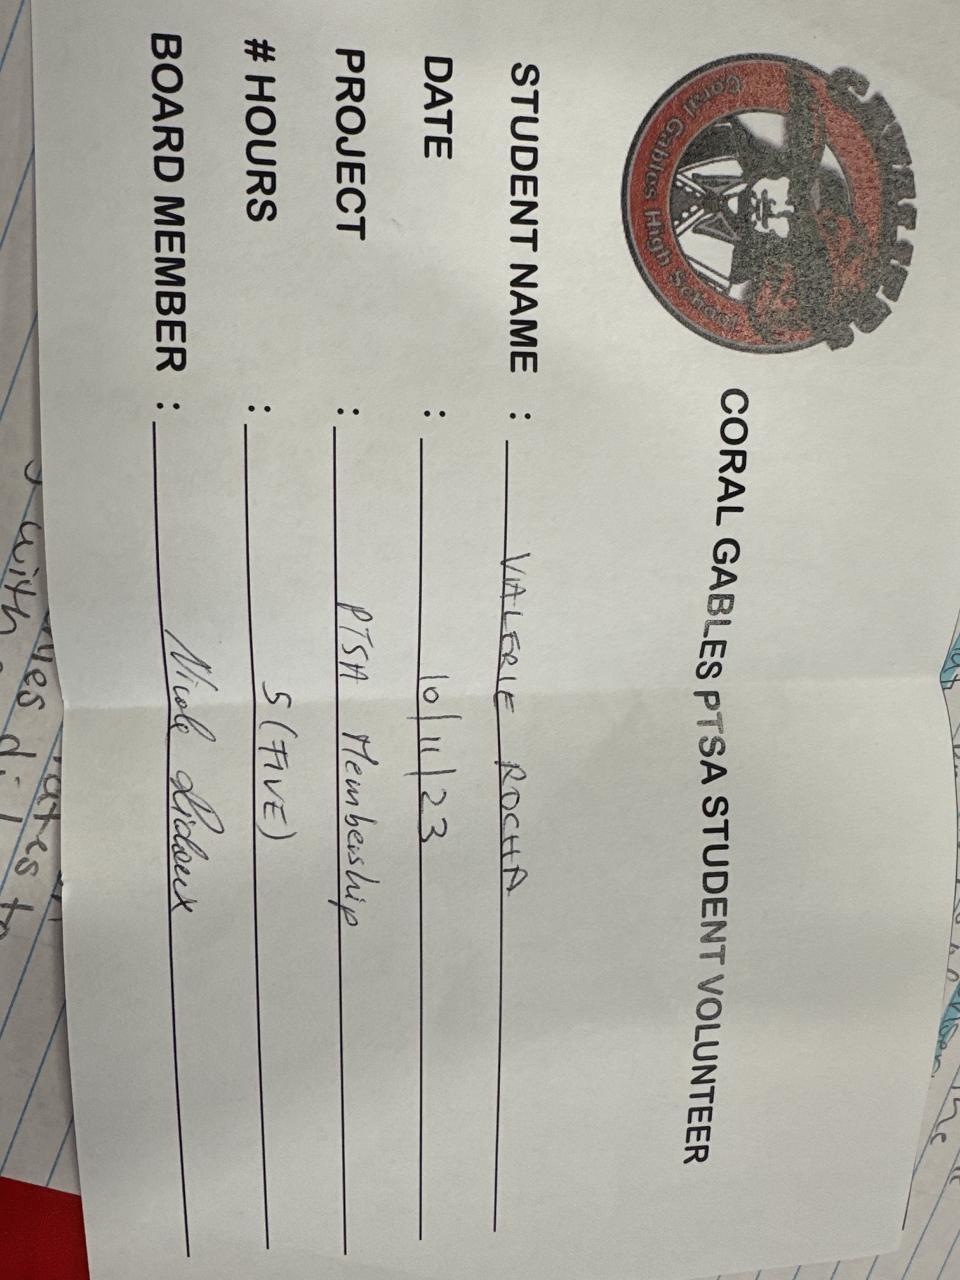 CAVALIERS
Coral Gables High School
CORAL GABLES PTSA STUDENT VOLUNTEER
STUDENT NAME : VALERIE ROCHA
DATE : 10/11/23
PROJECT : PTSA Membership
# HOURS : 5 (FIVE)
BOARD MEMBER : Nicole
with